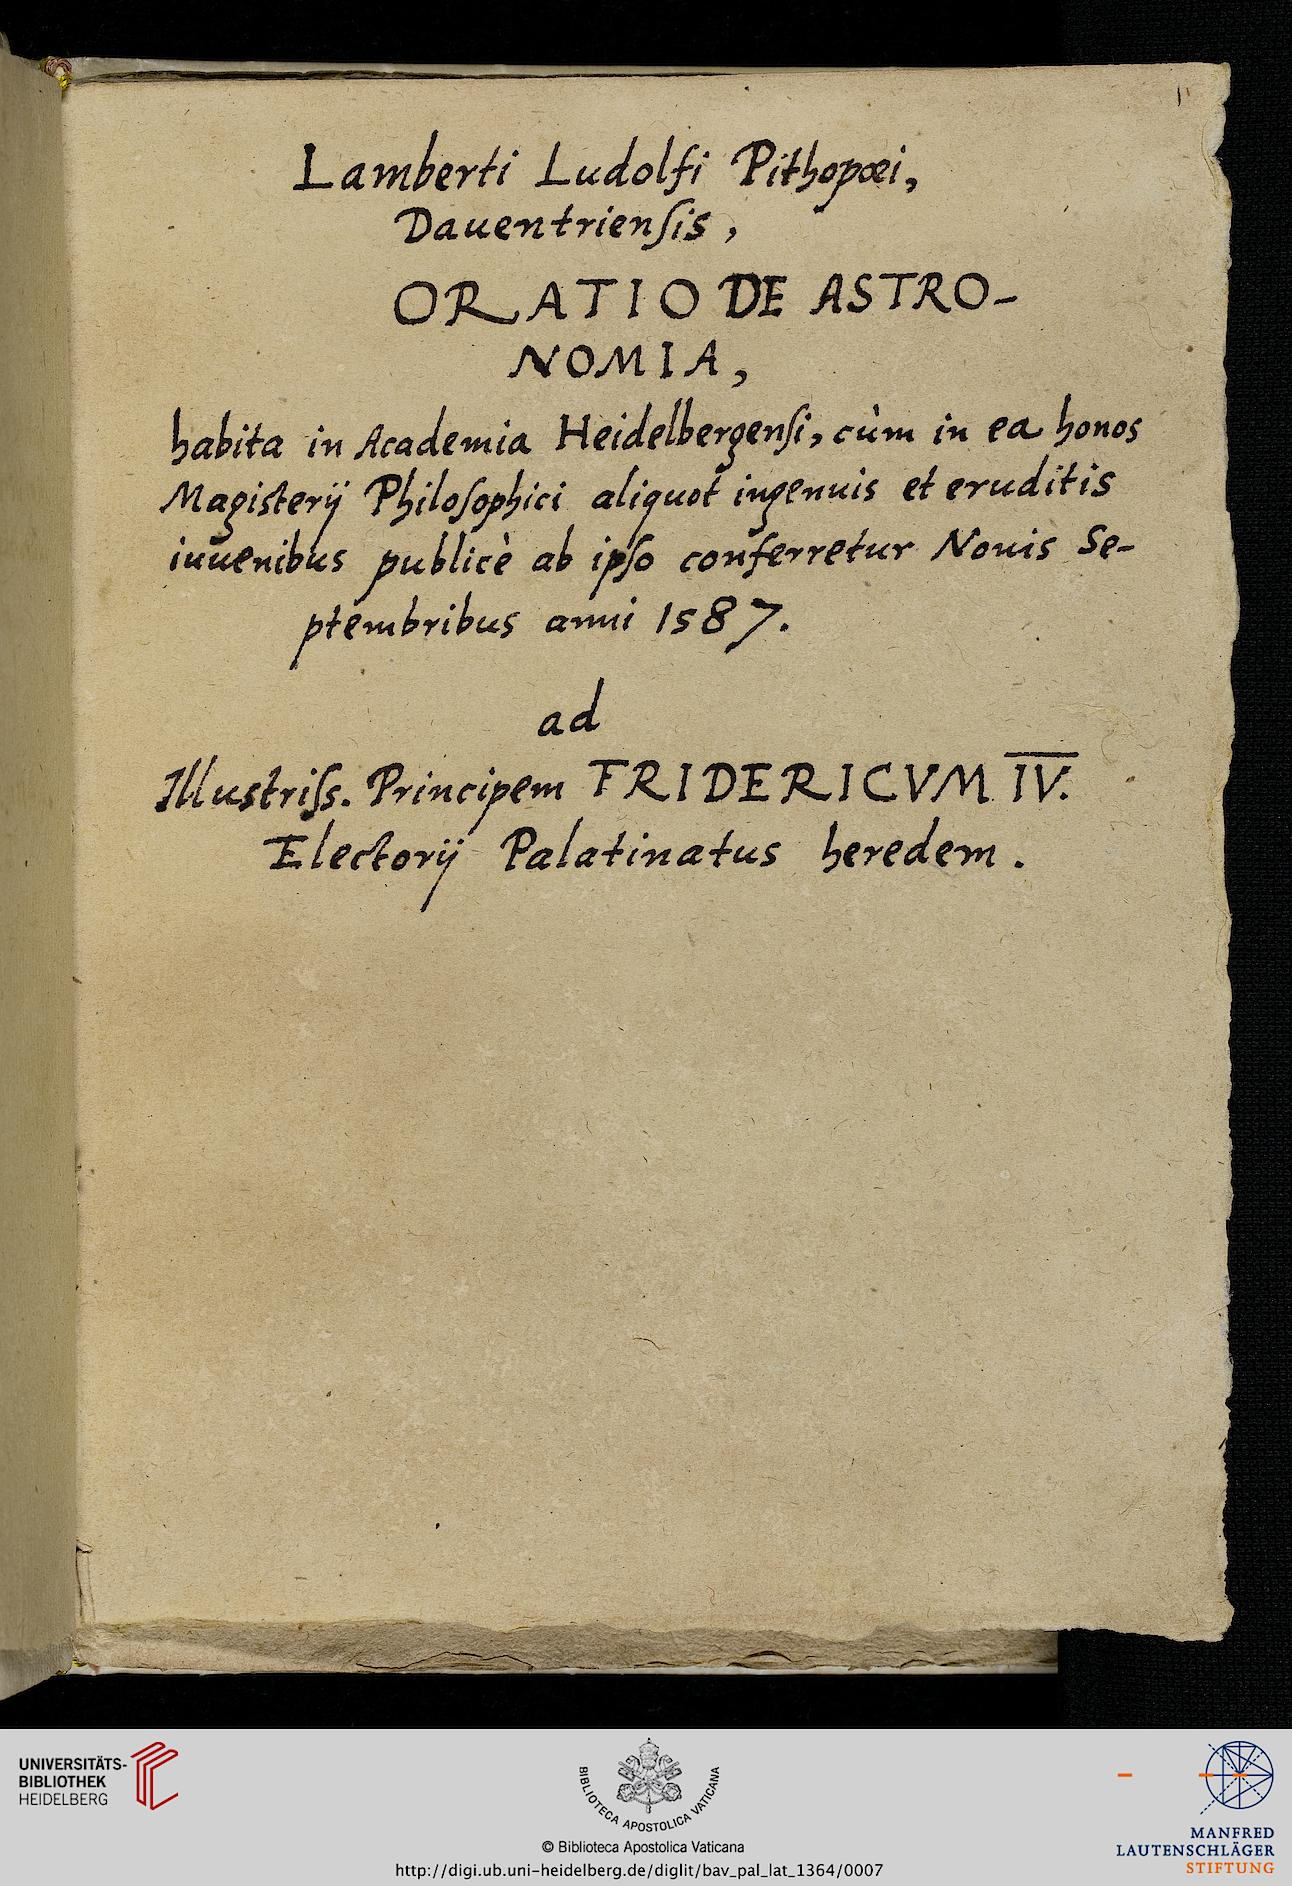 Lamberti Ludolfi Pithopœi,
Dauentrienſis,
ORATIO DE ASTRO-
NOMIA,
habita in Academia Heidelbergenſi, cùm in ea honos
Magisterij Philoſophici aliquot ingenuis et eruditis
iuuenibus publicè ab ipſo conferretur Nonis Se-
ptembribus anni 1587.
ad
Illustriſs. Principem FRIDERICVM IV.
Electorij Palatinatus heredem.
UNIVERSITÄTS-
BIBLIOTHEK
HEIDELBERG
BIBLIOTECA APOSTOLICA VATICANA
© Biblioteca Apostolica Vaticana
http://digi.ub.uni-heidelberg.de/diglit/bav_pal_lat_1364/0007
MANFRED
LAUTENSCHLÄGER
STIFTUNG